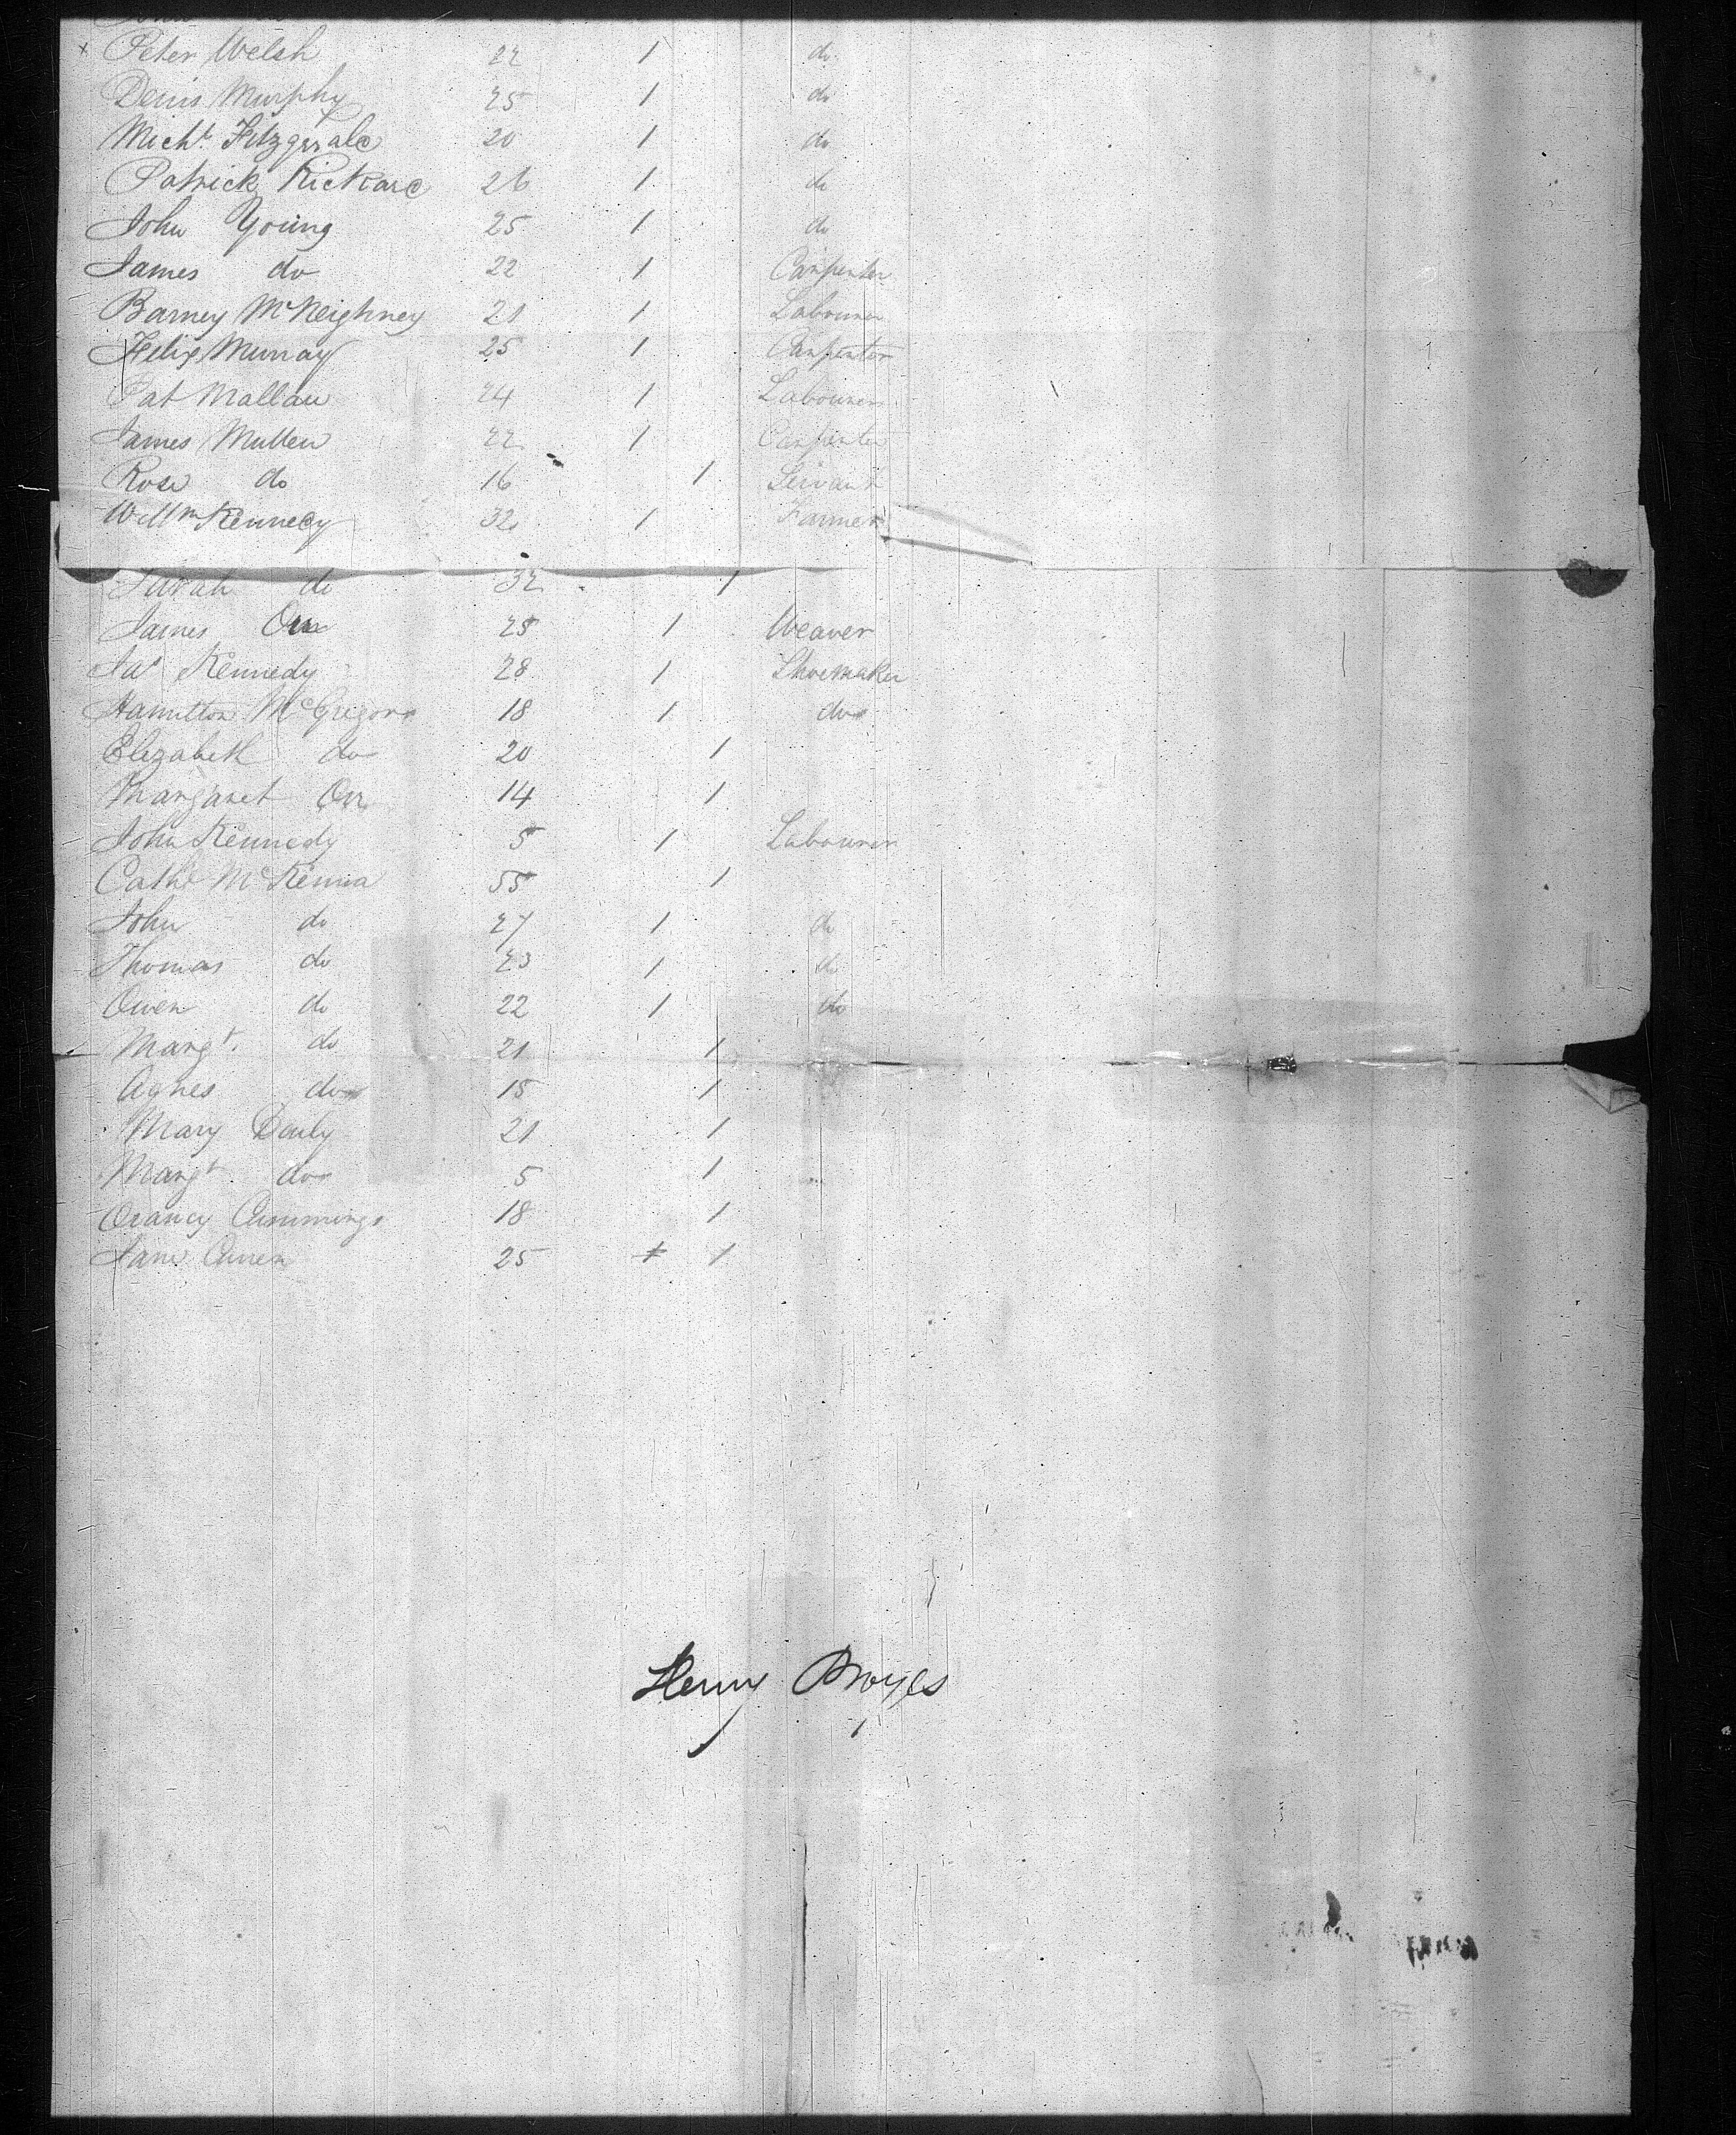 x Peter Welsh 22 1 do
Denis Murphy 25 1 do
Micht. Fitzgerald 20 1 do
Patrick Rickard 26 1 do
John Young 25 1 do
James do 22 1 Carpenter
Barney McKeighney 21 1 Labourer
Felix Murray 25 1 Carpenter
Pat Mallan 24 1 Labourer
James Mullen 22 1 Carpenter
Rose do 16 1 Servant
Willm Kennedy 32 1 Farmer
Sarah do 32 1
James Orr 25 1 Weaver
Jas Kennedy 28 1 Shoemaker
Hamilton McGregor 18 1 do
Elizabeth do 20 1
Margaret Orr 14 1
John Kennedy 5 1 Labourer
Cathe McKenna 55 1
John do 27 1 do
Thomas do 23 1 do
Owen do 22 1 do
Margt. do 21 1
Agnes do 15 1
Mary Dealy 21 1
Margt. do 5 1
Cummings 18 1
Jane 25 1 1
Henry Broyles